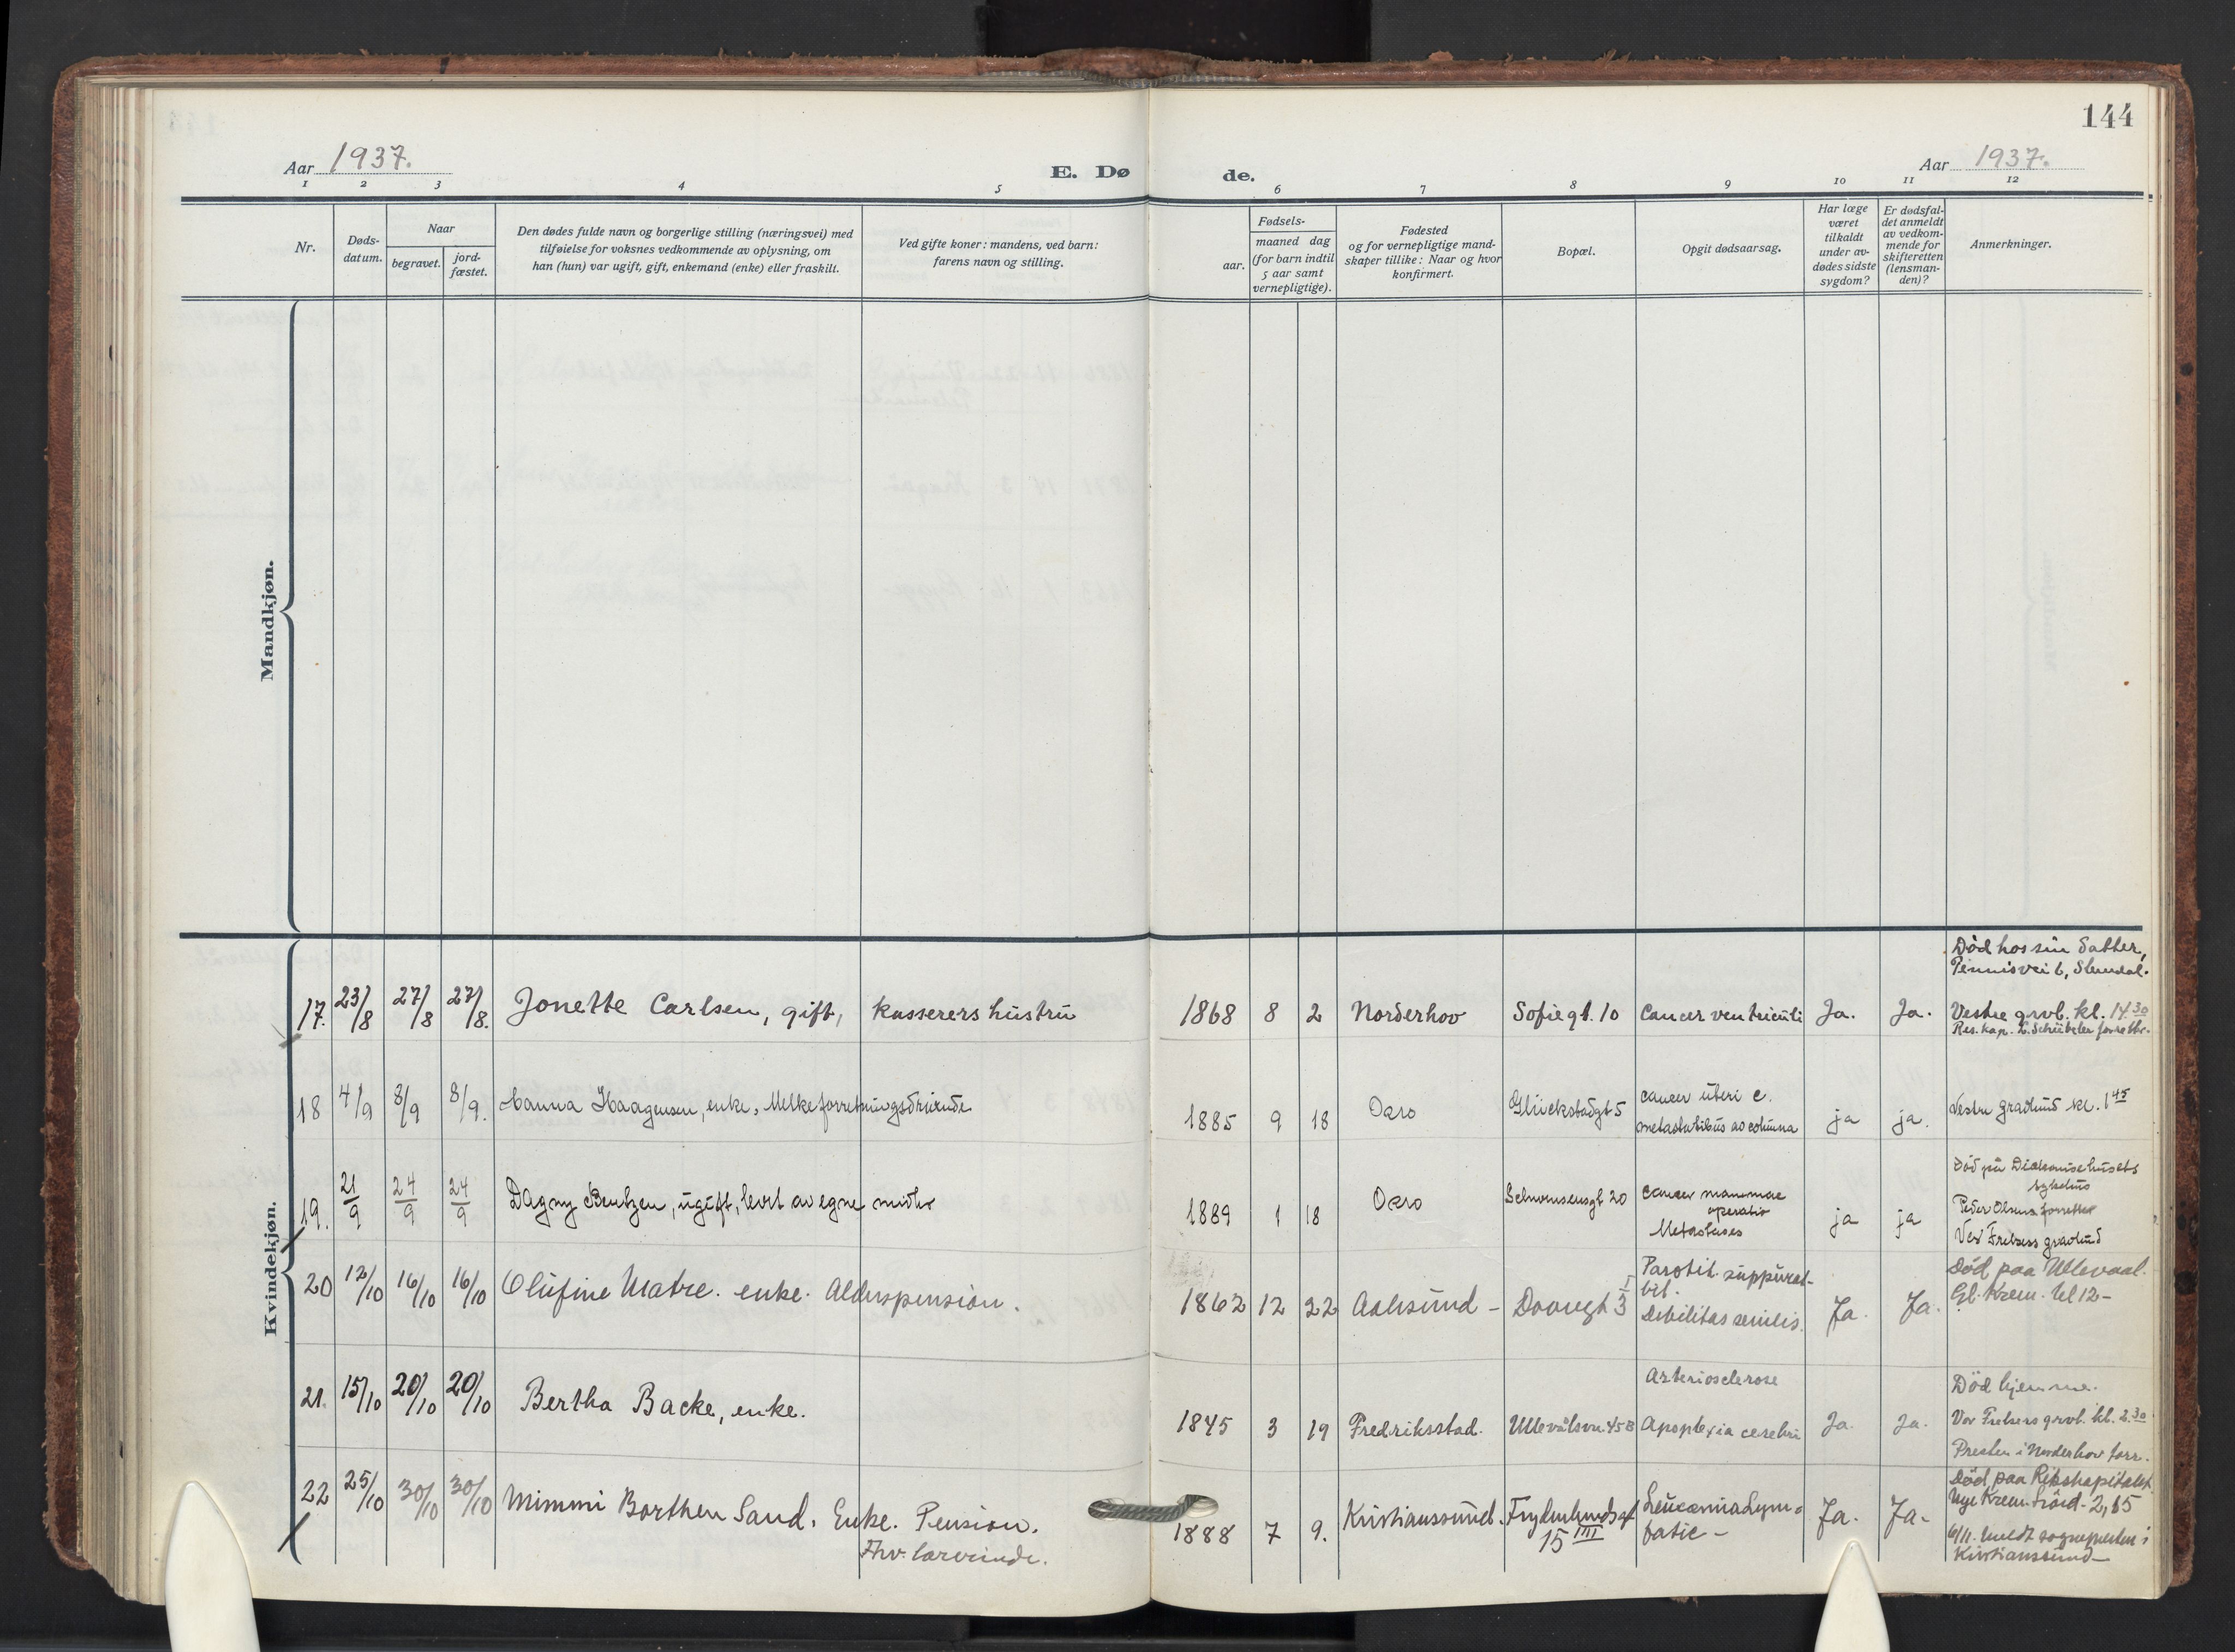 144
Aar 1937.
E. Dø
de.
Aar 1937.
1 2 3 4 5 6 7 8 9 10 11 12
Nr.
Døds-
datum.
Naar
begravet.
jord-
fæstet.
Den dødes fulde navn og borgerlige stilling (næringsvei) med
tilføielse for voksnes vedkommende av oplysning, om
han (hun) var ugift, gift, enkemand (enke) eller fraskilt.
Ved gifte koner: mandens, ved barn:
farens navn og stilling.
Fødsels-
aar.
maaned dag
(for barn indtil
5 aar samt
vernepligtige).
Fødested
og for vernepligtige mand-
skaper tillike: Naar og hvor
konfirmert.
Bopæl.
Opgit dødsaarsag.
Har læge
været
tilkaldt
under av-
dødes sidste
sygdom?
Er dødsfal-
det anmeldt
av vedkom-
mende for
skifteretten
(lensman-
den)?
Anmerkninger.
Mandkjøn.
Kvindekjøn.
Død hos sin datter,
Tennisvei 6, Slemdal.
17. 23/8 27/8 27/8. Jonette Carlsen, gift, kasserers hustru 1868 8 2 Norderhov Sofiegt. 10 Cancer ventriculi Ja. Ja. Vestre grvl. kl. 14.30
Res. kap. Schübeler forrettr.
18 4/9 8/9 8/9. Hanna Haagensen, enke, Melkeforretningsdrivende 1885 9 18 Oslo Glückstadgt 5 cancer uteri c.
metastatibus ad columna ja ja. Vestre gravlund kl. 1 45
19. 21/9 24/9 24/9 Dagny Bentzen, ugift, levet av egne midler 1889 1 18 Oslo Schwensensgt 20 cancer mammae
operatio
Metastases ja ja Død på Diakonissehusets
sykehus
Peder Olsen forrettet
Vår Frelsers gravlund
20 12/10 16/10 16/10 Olufine Matre. enke. Alderspension. 1862 12 22 Aalesund - Dovregt 3 I Parotit. suppurat-
bil.
Debilitas senilis. Ja. Ja. Død paa Ullevaal.
Gl. Krem. kl 12-
21. 15/10 20/10 20/10 Bertha Backe, enke. 1845 3 19 Fredriksstad. Ullevålsvn. 45B Arteriosclerose
Apoplexia cerebri Ja. Ja. Død hjemme.
Vor Frelsers grvl. kl. 2.30
Presten i Norderhov forr.
22 25/10 30/10 30/10 Mimmi Borthen Sand. Enke. Pension.
Fhv. lærerinde. 1888 7 9. Kristianssund. Frydenlundsgt
15 III Leucæmia Lym-
fatic - Ja. Ja. Død paa Rikshospitalet.
Nye Krem. 2,15
6/11. meldt sognepresten i
Kristianssund-